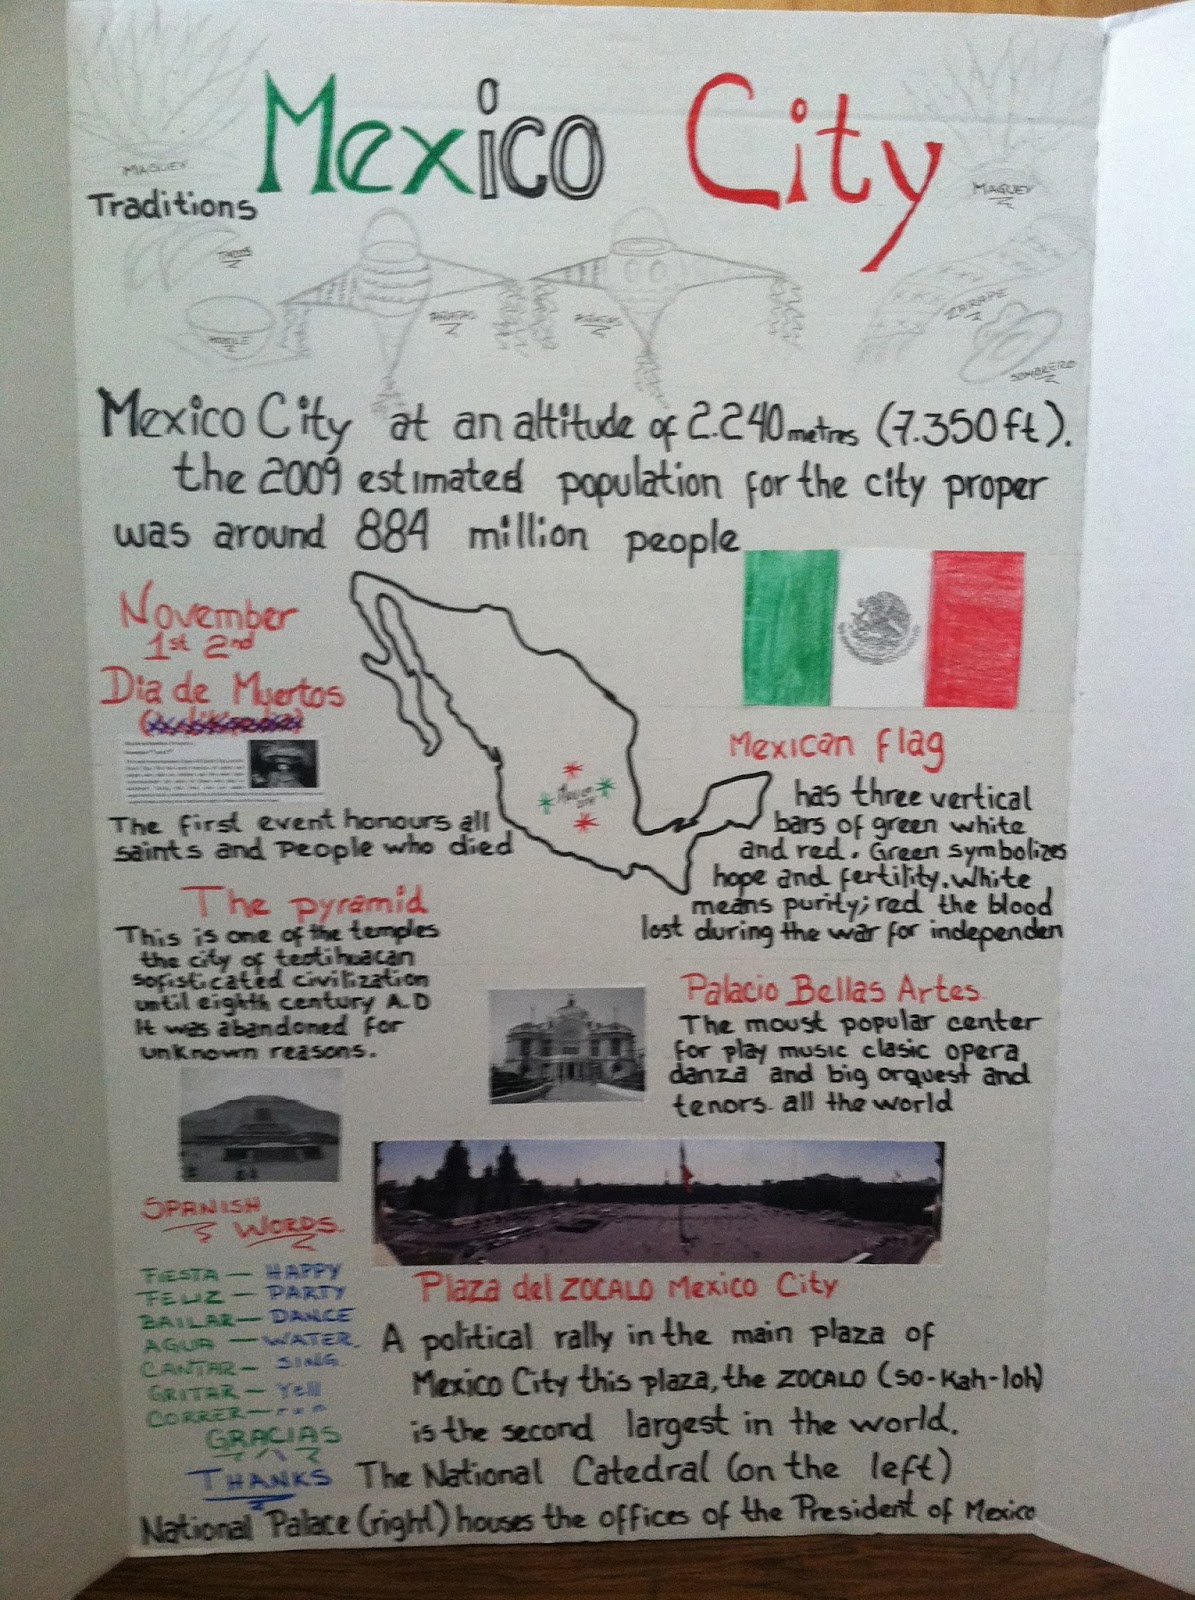 Mexico City
MAGUEY
MAGUEY
Traditions
TACOS
PIÑATAS
PIÑATAS
ZARAPE
SOMBRERO
Mexico City at an altitude of 2.240 metres (7.350 ft).
the 2009 estimated population for the city proper
was around 884 million people
November
1st 2nd
Dia de Muertos
Mexico
City
The first event honours all
saints and people who died
Mexican flag
has three vertical
bars of green white
and red. Green symbolizes
hope and fertility. White
means purity; red the blood
lost during the war for independen
The pyramid
This is one of the temples
the city of teotihuacan
sofisticated civilization
until eighth century A.D
It was abandoned for
unknown reasons.
Palacio Bellas Artes
The moust popular center
for play music clasic opera
danza and big orquest and
tenors. all the world
SPANISH
WORDS.
FIESTA — HAPPY
FELIZ — PARTY
BAILAR — DANCE
AGUA — WATER.
CANTAR — SING.
GRITAR — Yell
CORRER — run
GRACIAS
THANKS
Plaza del ZOCALO Mexico City
A political rally in the main plaza of
Mexico City this plaza, the ZOCALO (so-Kah-loh)
is the second largest in the world.
The National Catedral (on the left)
National Palace (right) houses the offices of the President of Mexico